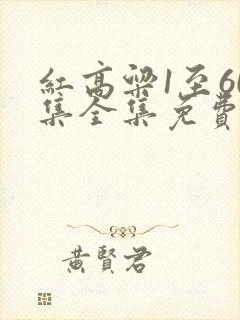 紅高粱1至60
集全集免費
黃賢君